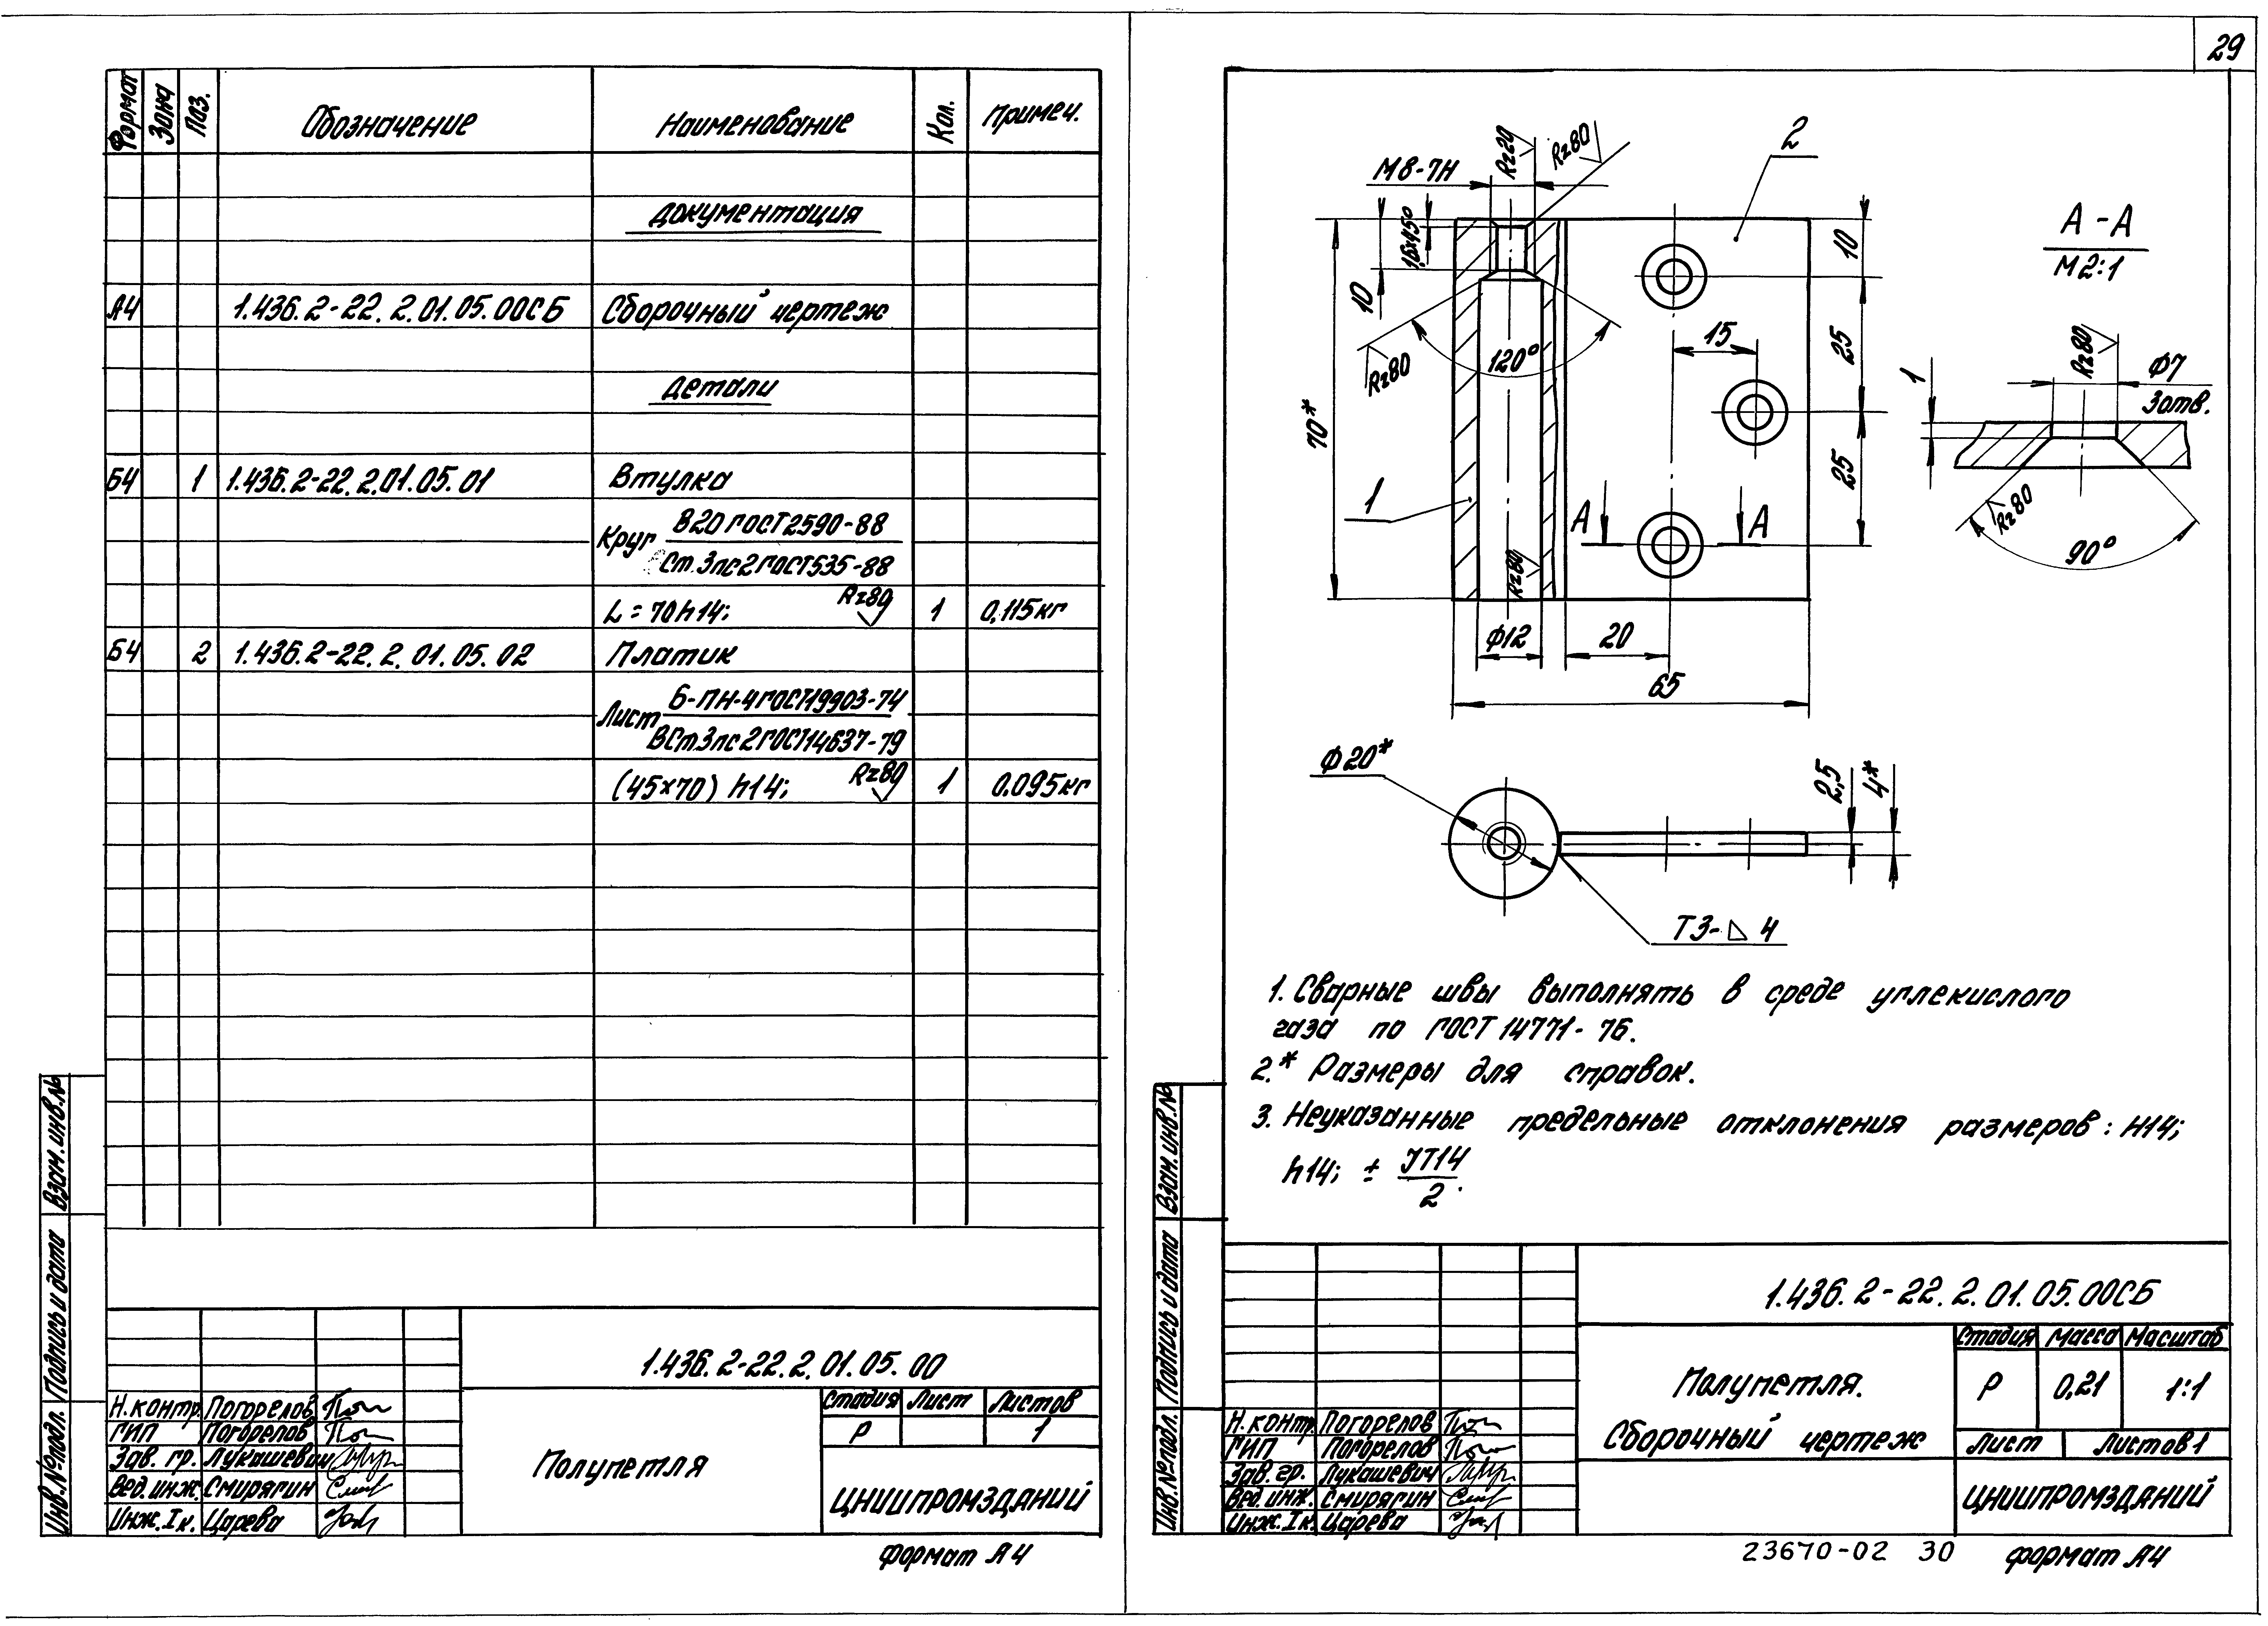 29
Формат Зона Поз. Обозначение Наименование Кол. Примеч.
Документация
А4 1.436.2-22.2.01.05.00СБ Сборочный чертеж
Детали
Б4 1 1.436.2-22.2.01.05.01 Втулка
Круг В20 ГОСТ 2590-88
Ст.3пс2 ГОСТ 535-88
L = 70h14; Rz80 1 0,115кг
Б4 2 1.436.2-22.2.01.05.02 Платик
Лист Б-ПН-4 ГОСТ 19903-74
ВСт.3пс2 ГОСТ 14637-79
(45×70) h14; Rz80 1 0.095кг
Взам.инв.№
Подпись и дата
Инв.№подл.
1.436.2-22.2.01.05.00
Н.контр. Погорелов
ГИП Погорелов
Зав. гр. Лукашевич
Вед.инж. Смирягин
Инж.Iк. Царева
Полупетля
Стадия Лист Листов
Р 1
ЦНИИПРОМЗДАНИЙ
Формат А4
М8-7Н
Rz20
Rz80
2
1,6×45°
10
70*
Rz80
120°
1
15
10
25
25
А А
Rz80
Ф12
20
65
А-А
М2:1
1
Rz80
Ф7
3отв.
Rz80
90°
Ф20*
2,5
4*
Т3-◺4
1. Сварные швы выполнять в среде углекислого
газа по ГОСТ 14771-76.
2.* Размеры для справок.
3. Неуказанные предельные отклонения размеров: H14;
h14; ± IT14
2.
Взам.инв.№
Подпись и дата
Инв.№подл.
1.436.2-22.2.01.05.00СБ
Полупетля.
Сборочный чертеж
Стадия Масса Масштаб
Р 0,21 1:1
Лист Листов 1
ЦНИИПРОМЗДАНИЙ
Н.контр. Погорелов
ГИП Погорелов
Зав.гр. Лукашевич
Вед.инж. Смирягин
Инж.Iк. Царева
23670-02 30 Формат А4